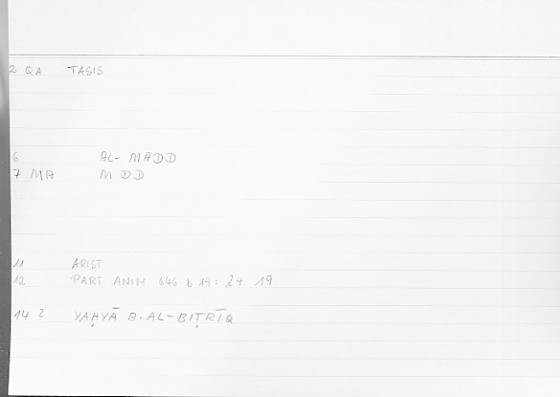 2 QA TASIS
6 AL- MADD
7 MA M DD
11 ARIST
12 PART ANIM 646 b 19: 24. 19
14 2 YAḤYĀ B. AL-BIṬRĪQ